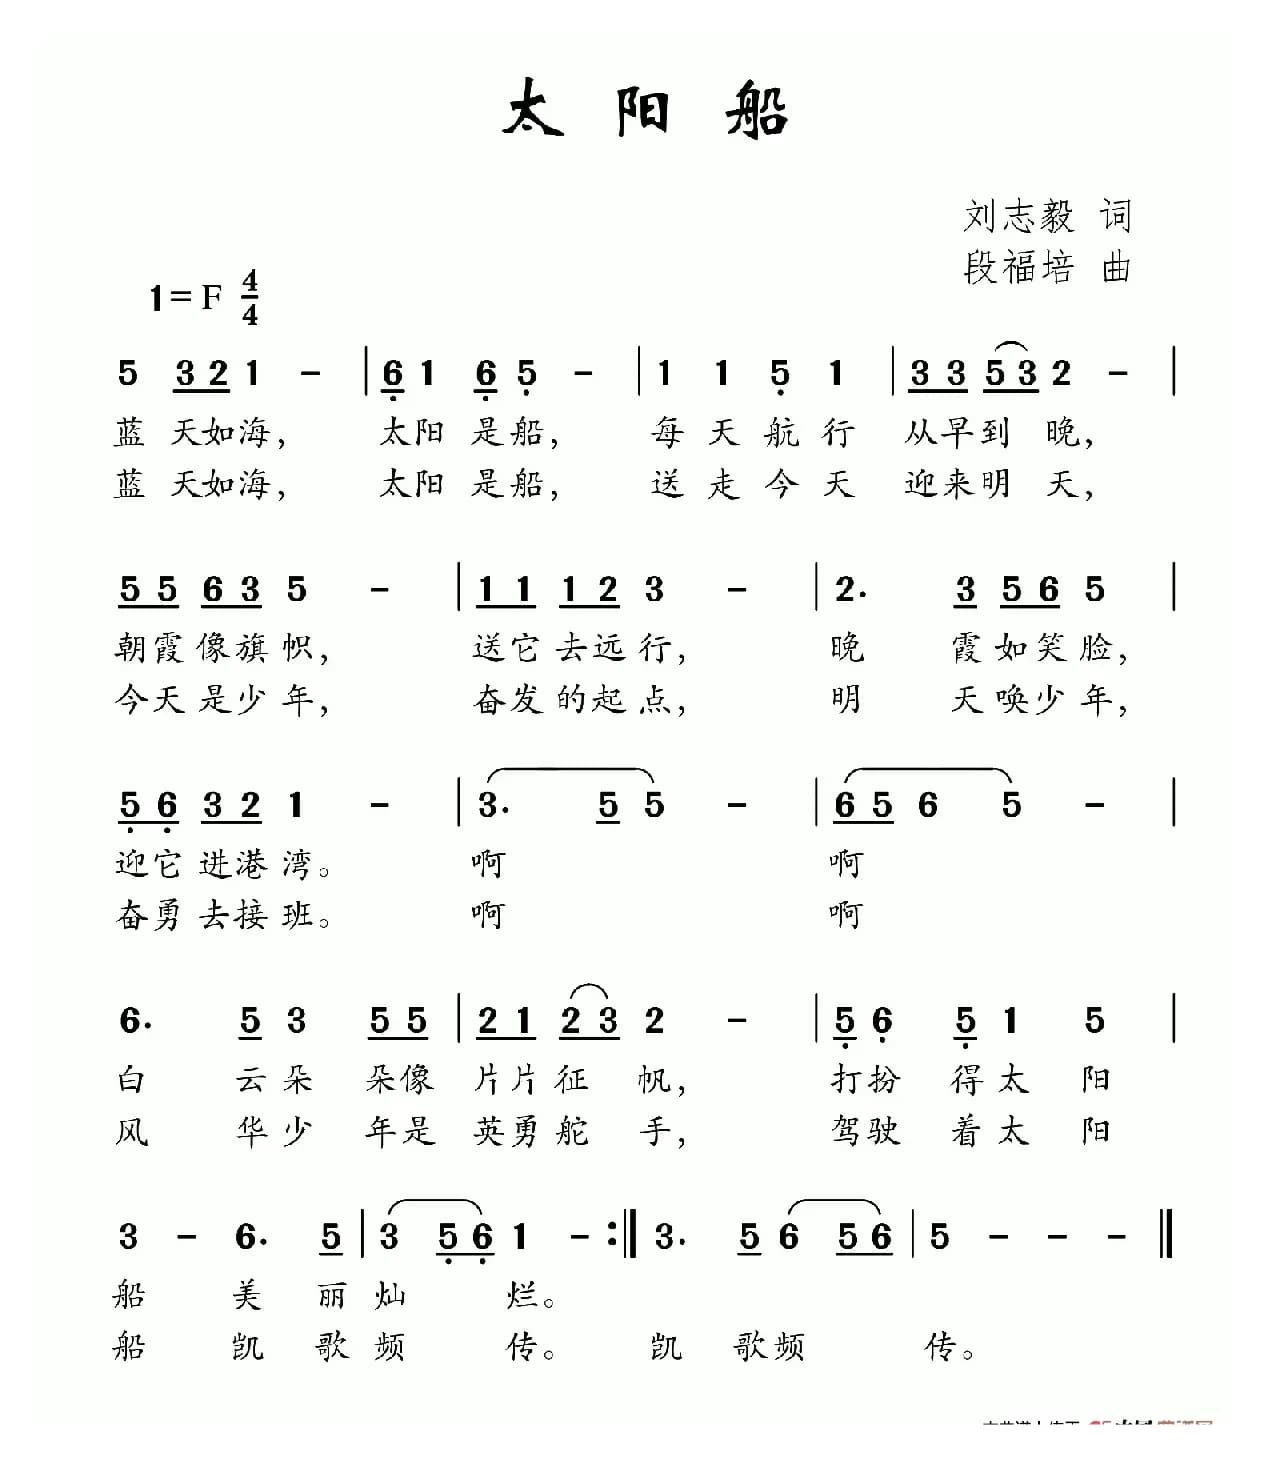 太阳船
刘志毅 词
段福培 曲
1=F 4/4
5 3 2 1 - | 6 1 6 5 - | 1 1 5 1 | 3 3 5 3 2 - |
蓝天如海， 太阳是船， 每天航行 从早到晚，
蓝天如海， 太阳是船， 送走今天 迎来明天，
5 5 6 3 5 - | 1 1 1 2 3 - | 2. 3 5 6 5 |
朝霞像旗帜， 送它去远行， 晚霞如笑脸，
今天是少年， 奋发的起点， 明天唤少年，
5 6 3 2 1 - | 3. 5 5 - | 6 5 6 5 - |
迎它进港湾。 啊 啊
奋勇去接班。 啊 啊
6. 5 3 5 5 | 2 1 2 3 2 - | 5 6 5 1 5 |
白云朵朵像片片征帆， 打扮得太阳
风华少年是英勇舵手， 驾驶着太阳
3 - 6. 5 | 3 5 6 1 - :‖ 3. 5 6 5 6 | 5 - - - ‖
船 美丽灿烂。
船 凯歌频传。 凯歌频传。